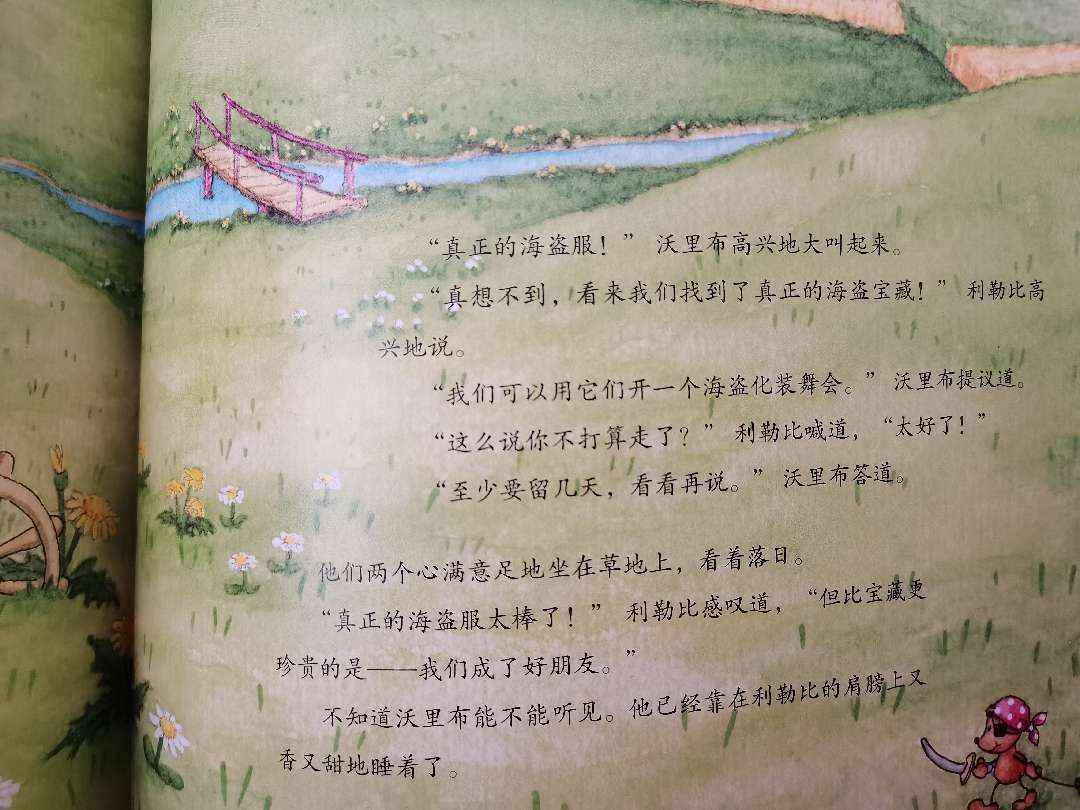 “真正的海盗服！” 沃里布高兴地大叫起来。
“真想不到，看来我们找到了真正的海盗宝藏！” 利勒比高
兴地说。
“我们可以用它们开一个海盗化装舞会。” 沃里布提议道。
“这么说你不打算走了？” 利勒比喊道，“太好了！”
“至少要留几天，看看再说。” 沃里布答道。
他们两个心满意足地坐在草地上，看着落日。
“真正的海盗服太棒了！” 利勒比感叹道，“但比宝藏更
珍贵的是——我们成了好朋友。”
不知道沃里布能不能听见。他已经靠在利勒比的肩膀上又
香又甜地睡着了。